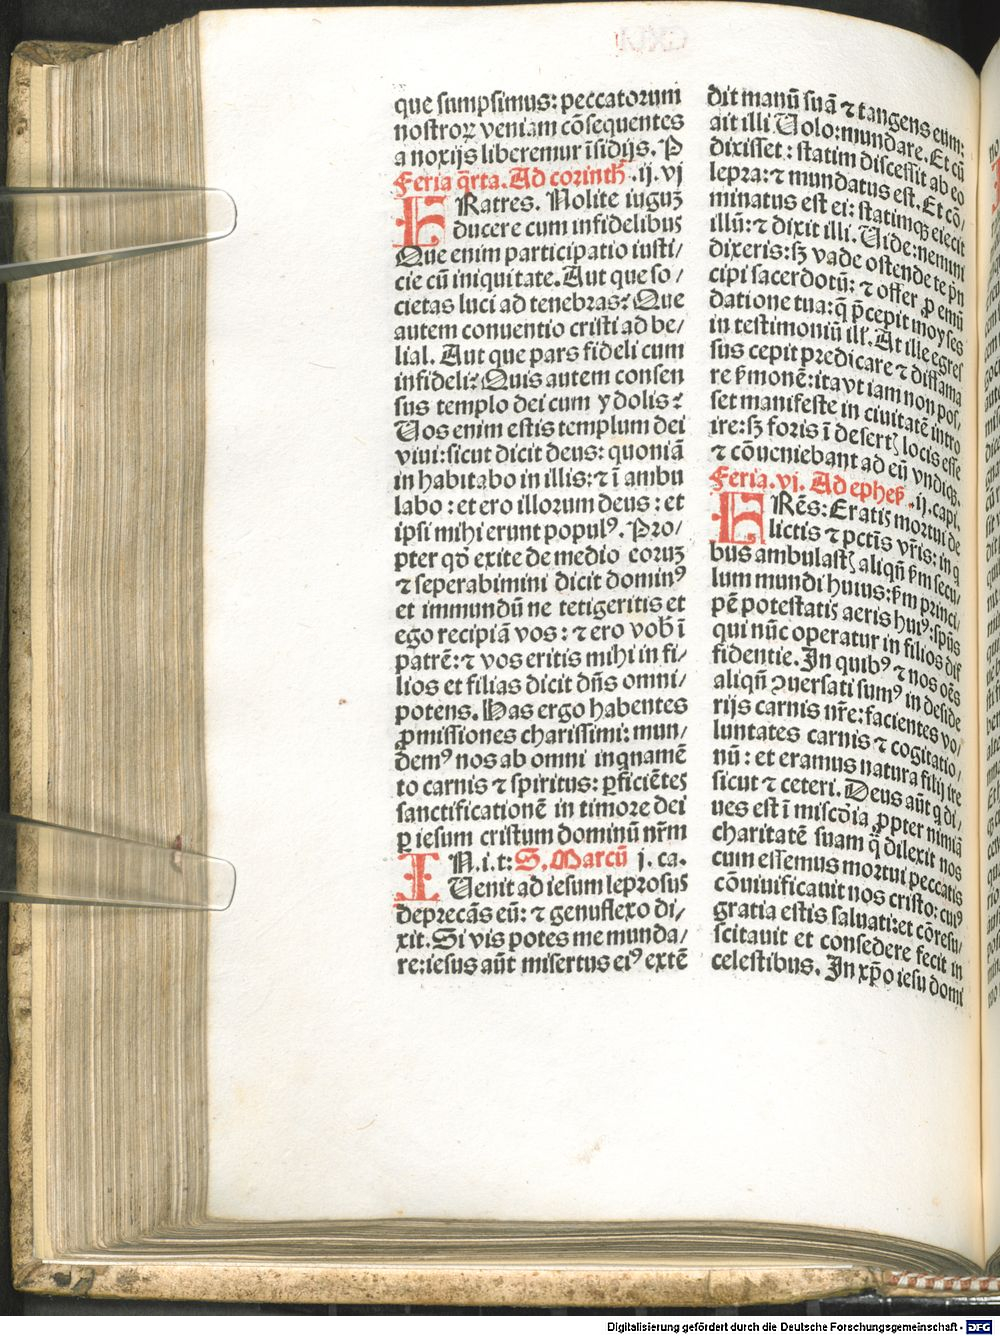 que sumpsimus: peccatorum
nostroꝝ veniam cōsequentes
a noxijs liberemur īsidijs. P
Feria q̄rta. Ad corinth̄ .ij. vj
FRatres. Nolite iuguꝫ
ducere cum infidelibus
Que enim participatio iusti/
cie cū iniquitate. Aut que so/
cietas luci ad tenebras? Que
autem conuentio cristi ad be/
lial. Aut que pars fideli cum
infideli? Quis autem consen
sus templo dei cum ydolis?
Uos enim estis templum dei
viui: sicut dicit deus: quoniā
inhabitabo in illis: ⁊ ī ambu
labo: et ero illorum deus: et
ipsi mihi erunt popul⁹. Pro/
pter qd̄ exite de medio eoruꝫ
⁊ seperabimini dicit domin⁹
et immundū ne tetigeritis et
ego recipiā vos: ⁊ ero vob̄ ī
patrē: ⁊ vos eritis mihi in fi/
lios et filias dicit dn̄s omni/
potens. Has ergo habentes
ꝓmissiones charissimi: mun/
dem⁹ nos ab omni inqnamē
to carnis ⁊ spiritus: ꝑficiētes
sanctificationē in timore dei
ꝑ iesum cristum dominū nr̄m
IN.i.t: S. Marcū j. ca.
Uenit ad iesum leprosus
deprecās eū: ⁊ genuflexo di/
xit. Si vis potes me munda/
re: iesus aūt misertus ei⁹ extē
dit manū suā ⁊ tangens eum:
ait illi Uolo: mundare. Et cū
dixisset: statim discessit ab eo
lepra: ⁊ mundatus est. Et cō/
minatus est ei: statimqꝫ eiecit
illū: ⁊ dixit illi. Uide: nemini
dixeris: sꝫ vade ostende te pn̄
cipi sacerdotū: ⁊ offer ꝓ emū
datione tua: q̄ p̄cepit moyses
in testimoniū ill'. At ille egres
sus cepit predicare ⁊ diffama
re ẜmonē: ita vt iam non pos/
set manifeste in ciuitatē intro
ire: sꝫ foris ī desert̄ locis esse
⁊ cōueniebant ad eū vndiqꝫ.
Feria.vj. Ad epheẜ .ij. capi.
FRēs: Eratis mortui de
lictis ⁊ pctīs vr̄is: in q
bus ambulast̄ aliqn̄ ẜm secu/
lum mundi huius: ẜm princi/
pē potestatis aeris hui⁹: spūs
qui nūc operatur in filios dif
fidentie. In quib⁹ ⁊ nos oēs
aliqn̄ ꝯuersati sum⁹ in deside
rijs carnis nr̄e: facientes vo/
luntates carnis ⁊ cogitatio/
nū: et eramus natura filij ire
sicut ⁊ ceteri. Deus aūt q di/
ues est ī misc̄dia ꝓpter nimiā
charitatē suam q̄ dilexit nos
cum essemus mortui peccatis
cōuiuificauit nos cristo: cui⁹
gratia estis saluati: et cōresu/
scitauit et consedere fecit in
celestibus. In xp̄o iesu domi
Digitalisierung gefördert durch die Deutsche Forschungsgemeinschaft - DFG